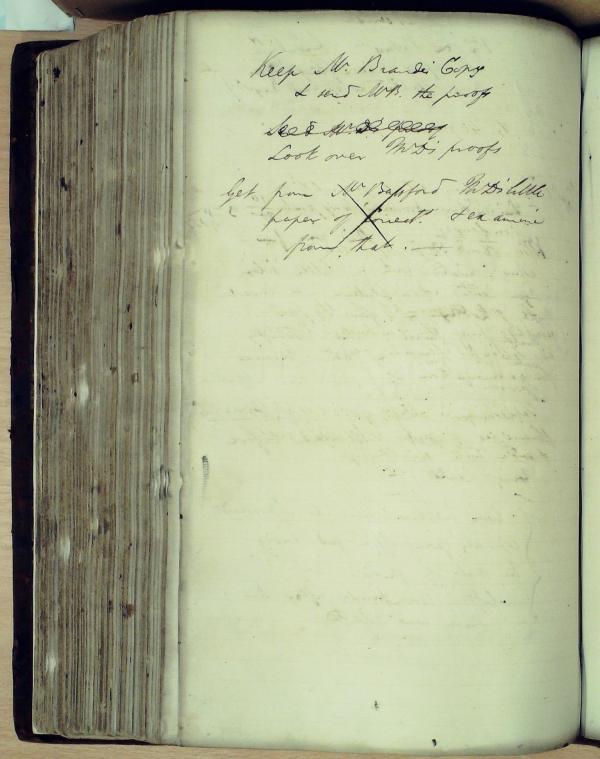 Keep Mr. Brande's Copy
& send Mr B. the proofs
Look over Mr D's proofs
Get from Mr Basford Mr D's little
paper of correct.ns & examine
from that. —